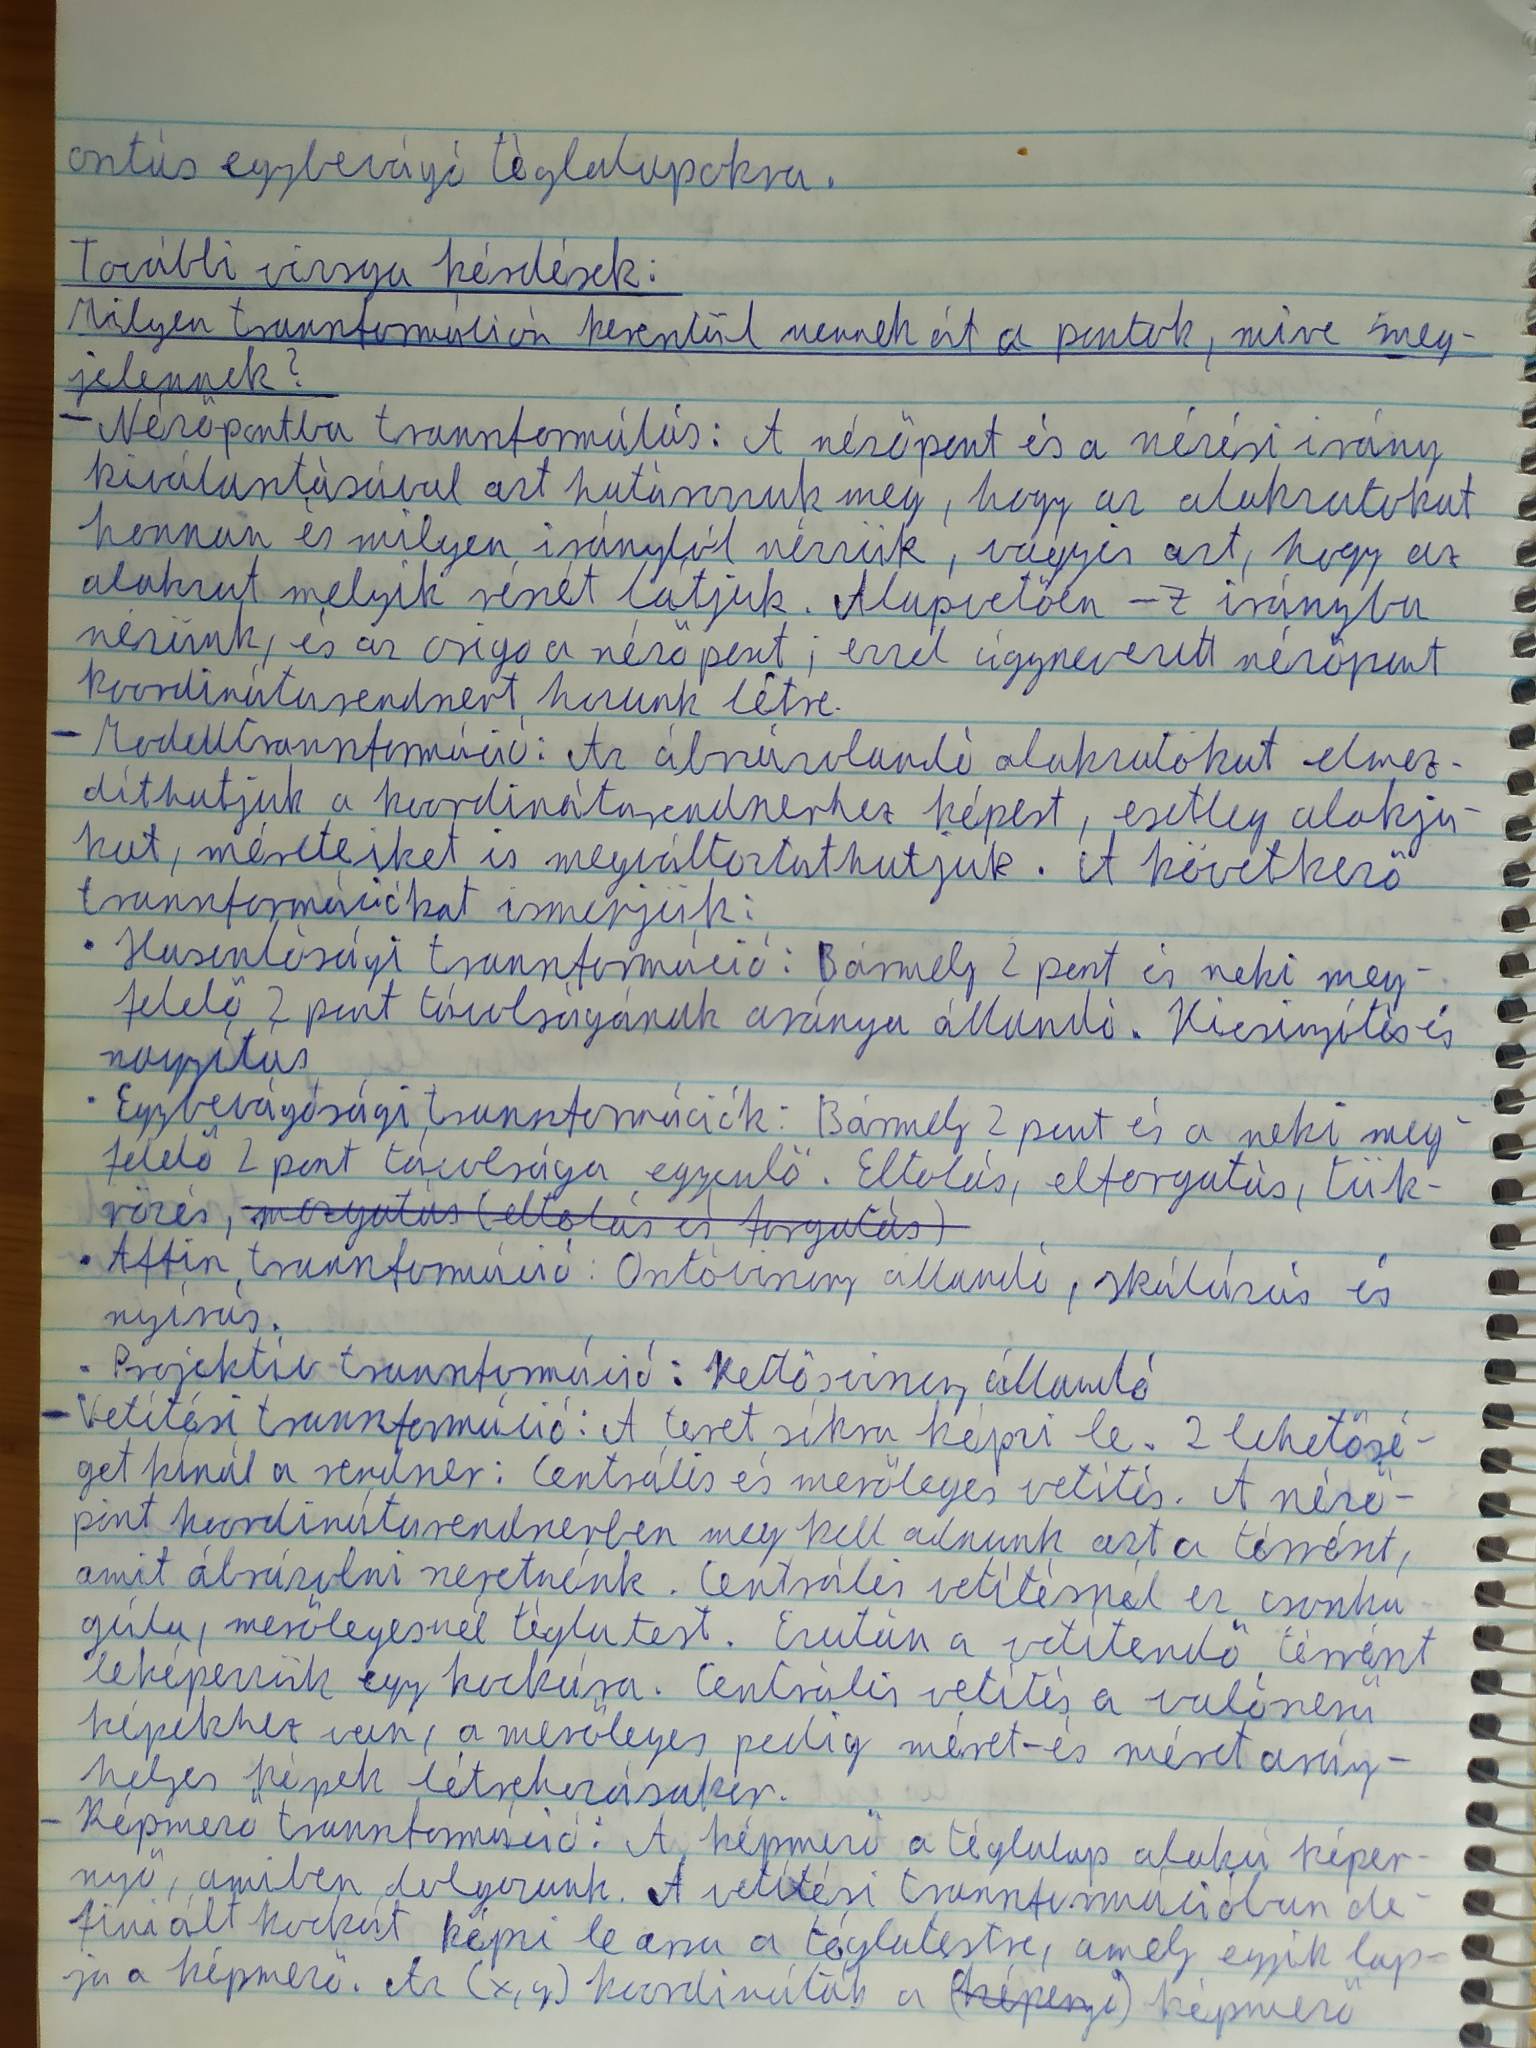 osztás egybevágó téglalapokra.
További vizsga kérdések:
Milyen transzformáción keresztül mennek át a pontok, mire meg-
jelennek?
- Nézőpontba transzformálás: A nézőpont és a nézési irány
kiválasztásával azt határozzuk meg, hogy az alakzatokat
honnan és milyen irányból nézzük, vagyis azt, hogy az
alakzat melyik részét látjuk. Alapvetően -z irányba
nézünk, és az origo a nézőpont; ezzel úgynevezett nézőpont
koordinátarendszert hozunk létre.
- Modelltranszformáció: Az ábrázolandó alakzatokat elmoz-
díthatjuk a koordinátarendszerhez képest, esetleg alakju-
kat, méreteiket is megváltoztathatjuk. A következő
transzformációkat ismerjük:
• Hasonlósági transzformáció: Bármely 2 pont és neki meg-
felelő 2 pont távolságának aránya állandó. Kicsinyítés és
nagyítás
• Egybevágósági transzformációk: Bármely 2 pont és a neki meg-
felelő 2 pont távolsága egyenlő. Eltolás, elforgatás, tük-
rözés, mozgatás (eltolás és forgatás)
• Affin transzformáció: Osztóviszony állandó, skálázás és
nyírás.
• Projektív transzformáció: Kettősviszony állandó
- Vetítési transzformáció: A teret síkra képzi le. 2 lehetősé-
get kínál a rendszer: Centrális és merőleges vetítés. A néző-
pont koordinátarendszerben meg kell adnunk azt a térrészt,
amit ábrázolni szeretnénk. Centrális vetítésnél ez csonka
gúla, merőlegesnél téglatest. Ezután a vetítendő térrészt
leképezzük egy kockára. Centrális vetítés a valószerű
képekhez van, a merőleges pedig méret-és méretarány-
helyes képek létrehozásakor.
- Képmező transzformáció: A képmező a téglalap alakú képer-
nyő, amiben dolgozunk. A vetítési transzformációban de-
finiált kockát képzi le arra a téglatestre, amely egyik lap-
ja a képmező. Az (x,y) koordináták a (képernyő) képmező